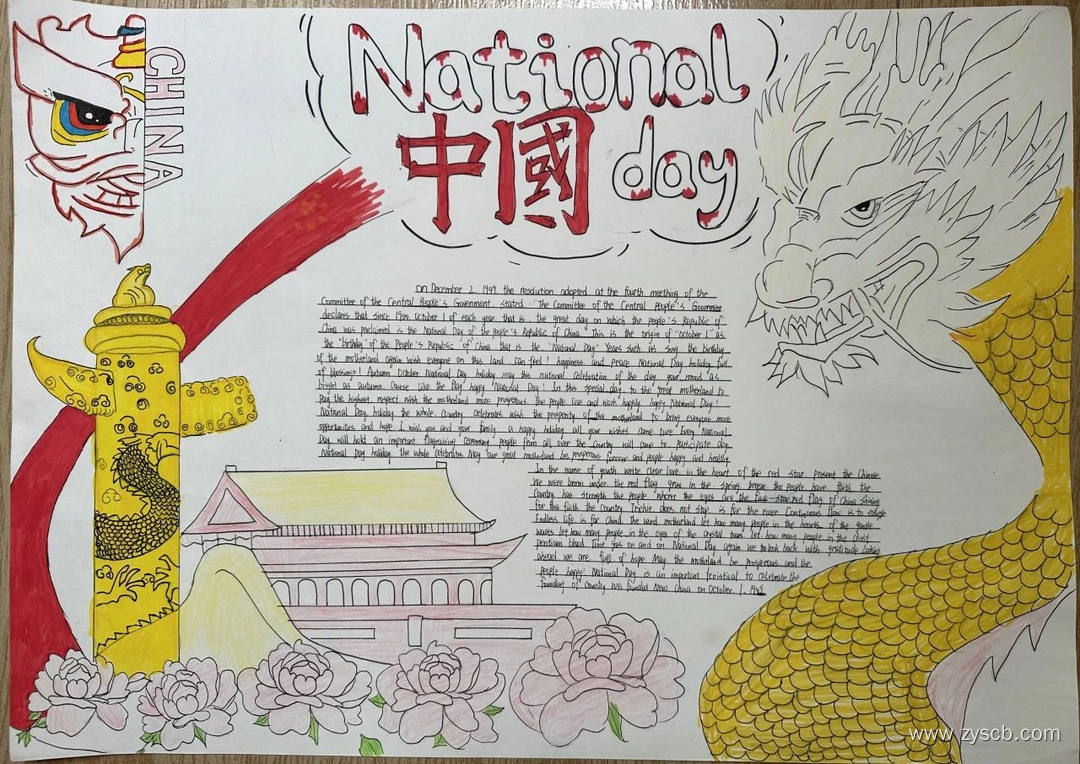 CHINA
National
中國 day
on December 2, 1949, the resolution adopted at the fourth meeting of the
Committee of the Central People's Government stated "The Committee of the Central People's Government
declares that since 1950, October 1 of each year, that is the great day on which the people's Republic of
China was proclaimed is the National Day of the people's Republic of China" This is the origin of "october 1" as
the "birthday" of the People's Republic of China that is the "National Day" Years such as song the birthday
of the motherland again wish everyone on this land can feel! happiness and peace National Day holiday full
of blessings! Autumn October National Day holiday may this national celebration of the day your mood as
bright as autumn. Cause like the flag happy National Day! In this special day to the great motherland to
pay the highest respect wish the motherland more prosperous the people live and work happily happy National Day!
National Day holiday the whole country celebrates wish the prosperity of the motherland to bring everyone more
opportunities and hope I wish you and your family a happy holiday all your wishes come ture Every National
Day will hold an important flagraising ceremony people from all over the country will come to participate
National Day holiday the whole celebrates May our great motherland be prosperous forever and people happy and healthy
In the name of youth write clear love in the heart of the red star present the Chinese
We were born under the red flag grow in the spring breeze the people have faith the
Country has strength the people where the eyes are the five-starred flag of China
for this faith the Country does not stop is for the river Contiguous flow is to
Endless life is for China the wind motherland let how many people in the
waves let how many people in the eyes of the crystal tears let how many people in the chest
blood Time goes on and on National Day again we to look back with gratitude looking
ahead we are full of hope May the motherland be prosperous and the
people happy National Day is an important to celebrate the
founding of country we founded New China on October 1,
www.zyscb.com